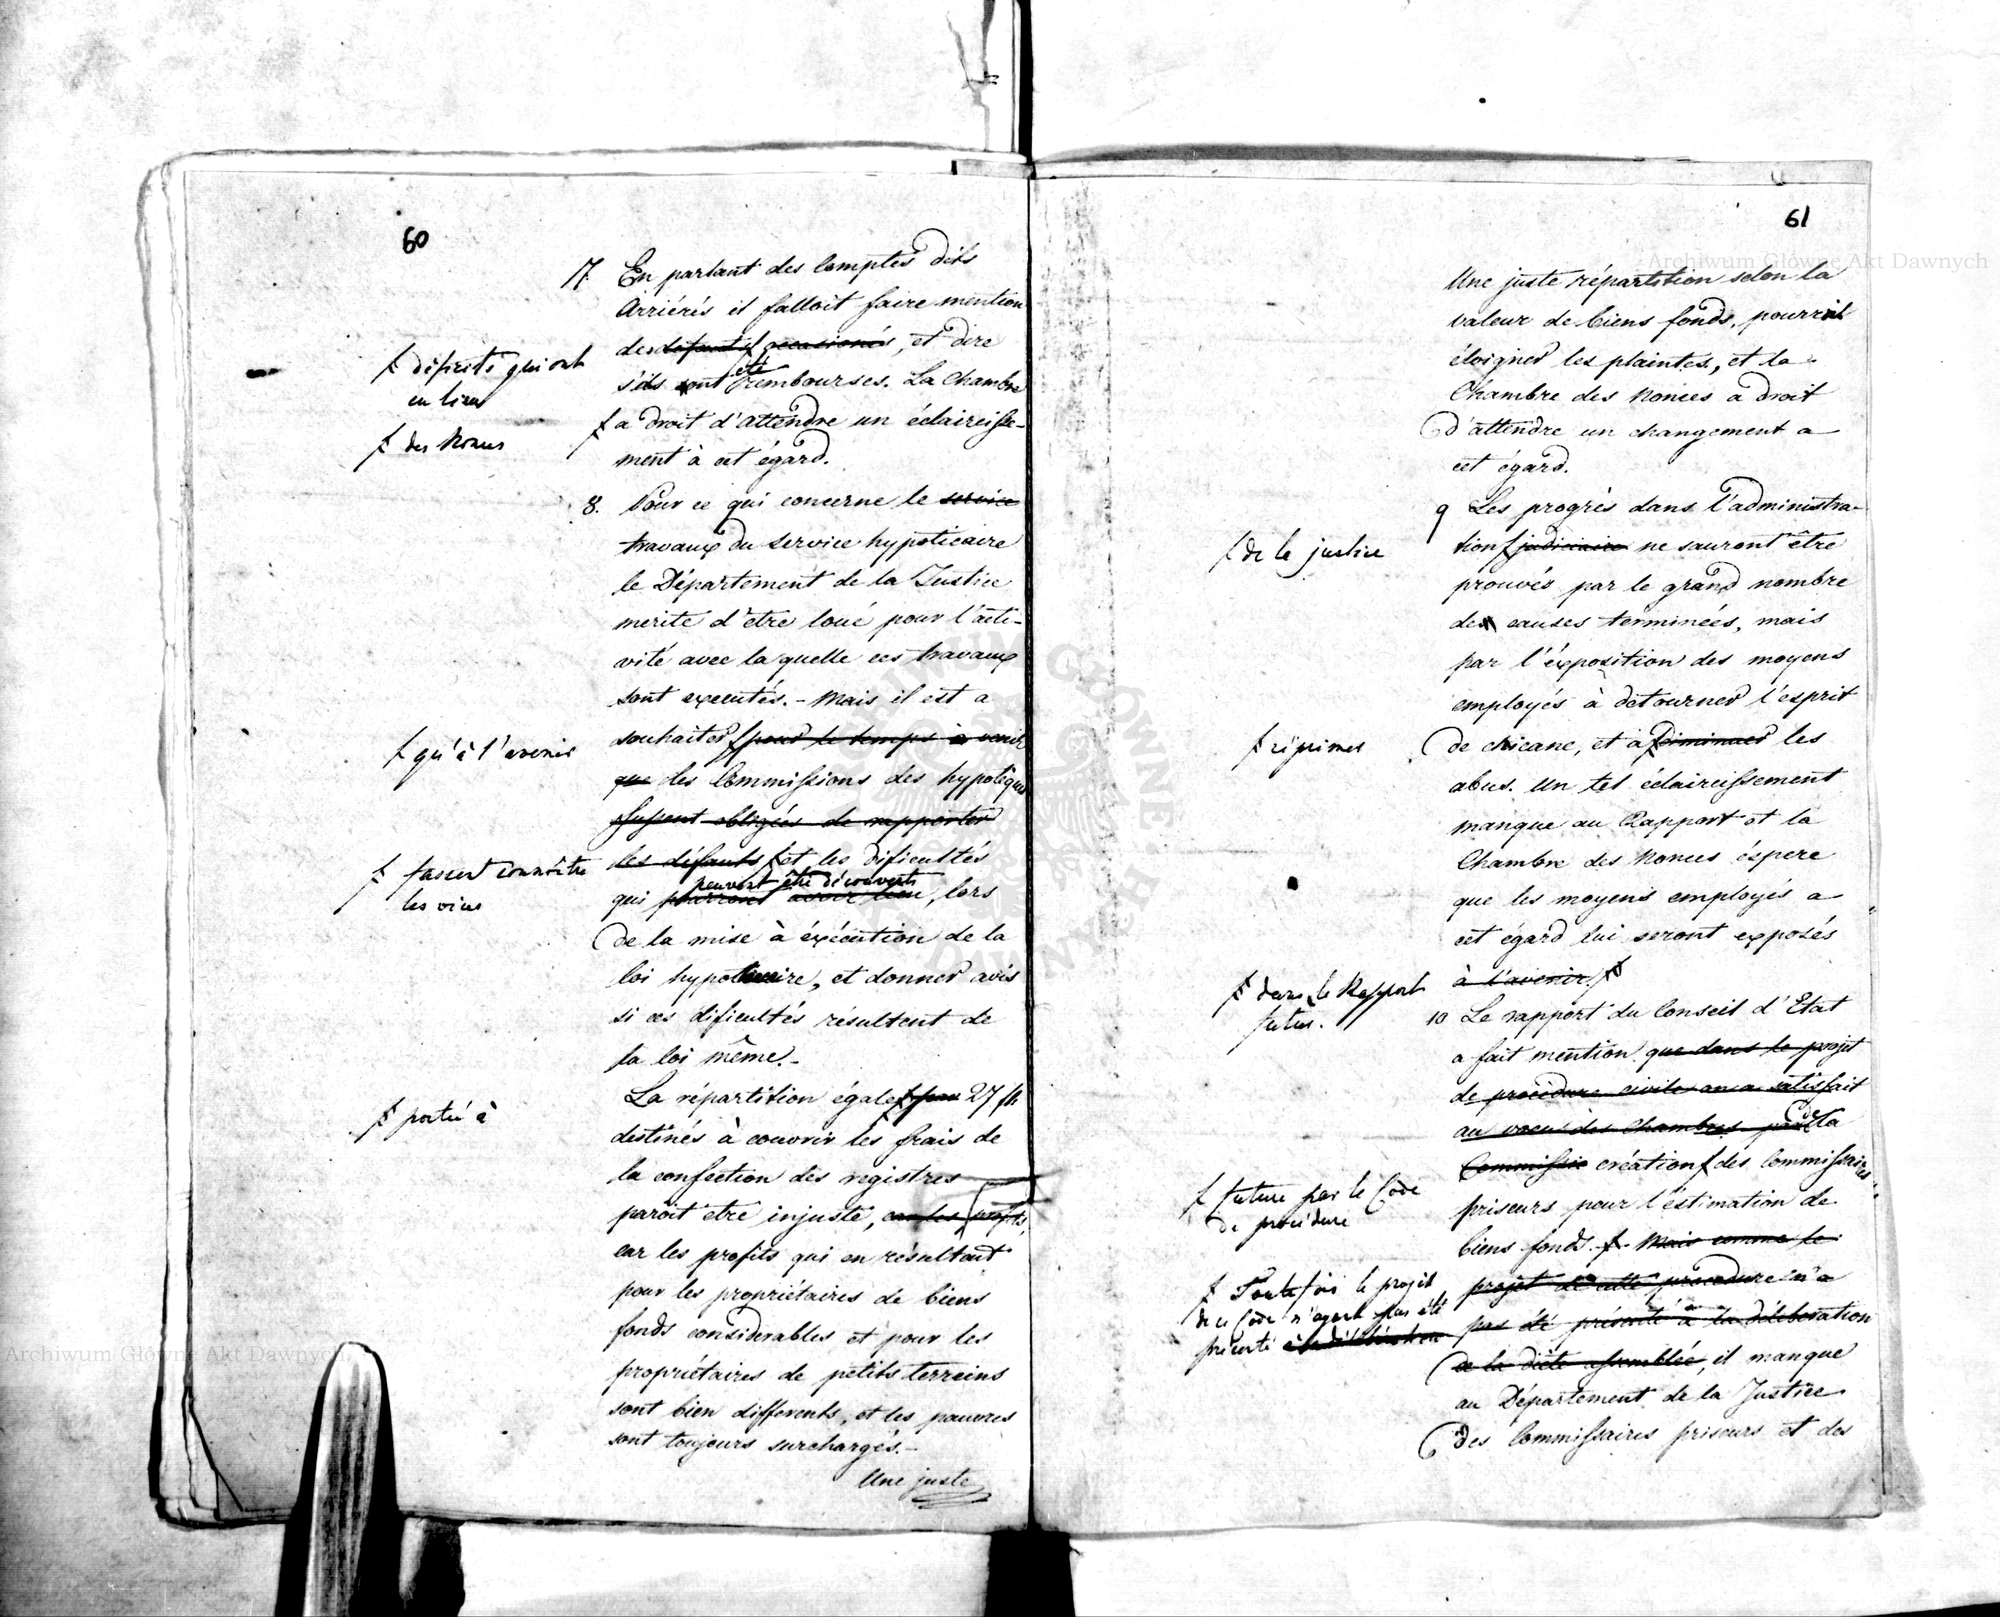 60
7. En parlant des Comptes dits
Arriérés il falloit faire mention
des défauts ƒ occasionés, et dire
ƒ déficits qui ont
eu lieu
s'ils ont été rembourses. La Chambre
ƒ des Nonces
ƒ a droit d'attendre un éclaircisse-
ment à cet égard.
8. Pour ce qui concerne le service
travaux du service hypoticaire
le Département de la Justice
merite d'etre loué pour l'acti-
vité avec la quelle ces travaux
sont executés. - Mais il est a
souhaiter ƒ pour le temps à venir
ƒ qu'à l'avenir
que les Commissions des hypotèques
fussent obligées de rapporter
les défauts ƒ et les dificultés
ƒ fassent connoître
les vices
peuvent être découverts
qui pourront avoir lieu, lors
de la mise à éxécution de la
loi hypoticaire, et donner avis
si ces dificultés résultent de
la loi même. -
La répartition égale ƒ par 27 fl.
ƒ portée à
destinés à couvrir les frais de
la confection des registres
paroit etre injuste, car les profits,
car les profits qui en résultent
pour les propriétaires de biens
fonds considerables et pour les
propriétaires de petits terreins
sont bien differents, et les pauvres
sont toujours surchargés. -
Une juste
61
Une juste répartition selon la
valeur de biens fonds, pourroit
éloigner les plaintes, et la
Chambre des Nonces a droit
d'attendre un changement a
cet égard.
9 Les progrès dans l'administra-
tion ƒ judiciaire ne sauront être
ƒ de la justice
prouvés par le grand nombre
des causes terminées, mais
par l'éxposition des moyens
employés à detourner l'esprit
de chicane, et à ƒ diminuer les
ƒ réprimer
abus. Un tel éclaircissement
manque au Rapport et la
Chambre des Nonces éspere
que les moyens employés a
cet égard lui seront exposés
à l'avenir. ƒ
ƒ dans le Rapport
futur.
10 Le rapport du Conseil d'Etat
a fait mention que dans le projet
de procédure civile on a satisfait
au voeu des Chambres par de la
Commissio création ƒ des Commissaires
ƒ future par le Code
de procédure
priseurs pour l'estimation de
biens fonds. ƒ. Mais comme le
projet de cette procedure n'a
ƒ Toutefois le projet
de ce Code n'ayant pas été
présenté à la délibération
pas été présenté à la délibération
de la diète assemblée, il manque
au Département de la Justice
des Commissaires priseurs et des
Archiwum Główne Akt Dawnych
Archiwum Główne Akt Dawnych